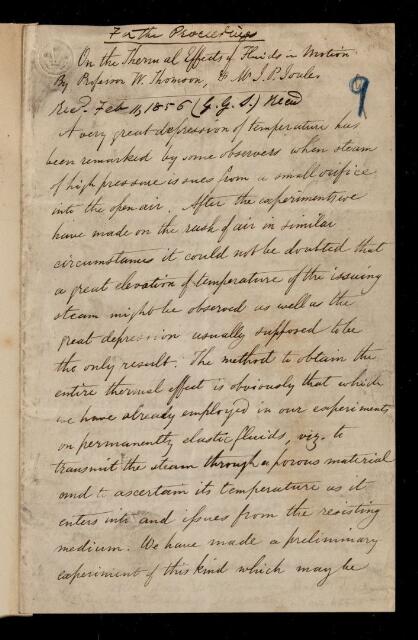 For the Proceedings
On the Thermal Effects of Fluids in Motion
By Professor W. Thomson, & Mr J. P. Joule.
Recd. Feb 11, 1856 (G. G. S.) Read
9
A very great depression of temperature has
been remarked by some observers when steam
of high pressure issues from a small orifice
into the open air. After the experiments we
have made on the rush of air in similar
circumstances it could not be doubted that
a great elevation of temperature of the issuing
steam might be observed as well as the
great depression usually supposed to be
the only result. The method to obtain the
entire thermal effect is obviously that which
we have already employed in our experiments
on permanently elastic fluids, viz. to
transmit the steam through a porous material
and to ascertain its temperature as it
enters into and issues from the resisting
medium. We have made a preliminary
experiment of this kind which may be